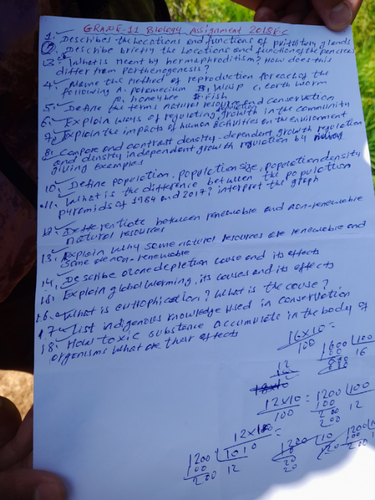 GRADE-11 Biology Assignment 2018 E.C
1. Describes the locations and functions of pituitary glands
2. Describe briefly the locations and functions of the pancreas
3. What is meant by hermaphroditism? How does this
differ from parthenogenesis?
4. Name the method of reproduction for each of the
following A. paramecium B. Wasp C. earth worm
D. honey bee E. fish
5. Define the terms natural resource and conservation
6. Explain ways of regulating growth in the community
7. Explain the impacts of human activities on the environment
8. compare and contrast density-dependent growth regulation
and density independent growth regulation by
giving example
10. Define population, population size, population density
11. What is the difference between the population
pyramids of 1984 and 2017? interpret the graph
12. Differentiate between renewable and non-renewable
natural resources
13. Explain why some natural resources are renewable and
some are non-renewable
14. Describe ozone depletion cause and its effects
15. Explain global warming, its causes and its effects
16. What is eutrophication? What is the cause?
17. List indigenous knowledge used in conservation
18. How toxic substance accumulate in the body of
organisms what are their effects
16×10
100
1600 100
16
12
12×10 = 1200 100
100
12
200
12×10
1200
12
200